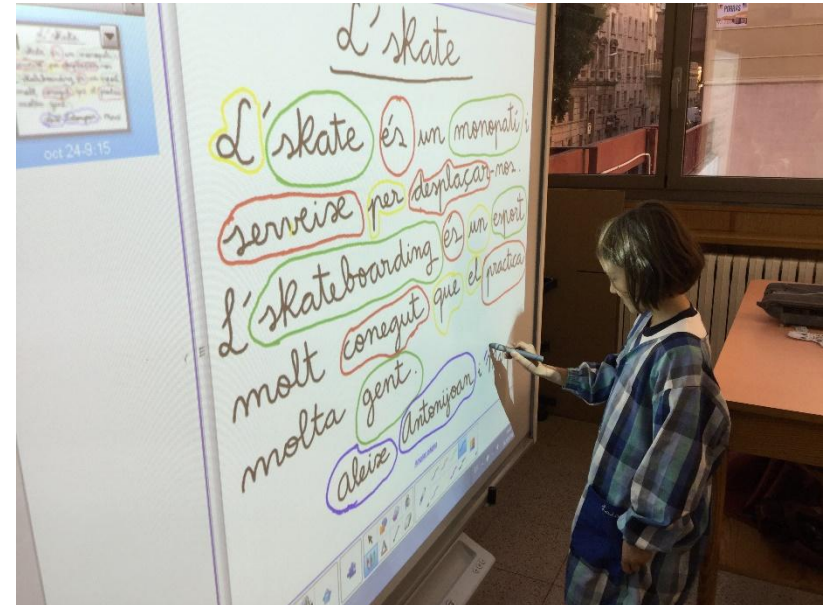 L'skate
L'skate és un monopatí i
serveix per desplaçar-nos.
L'skateboarding és un esport
molt conegut que el practica
molta gent.
Aleix Antonijoan i
oct 24-9:15